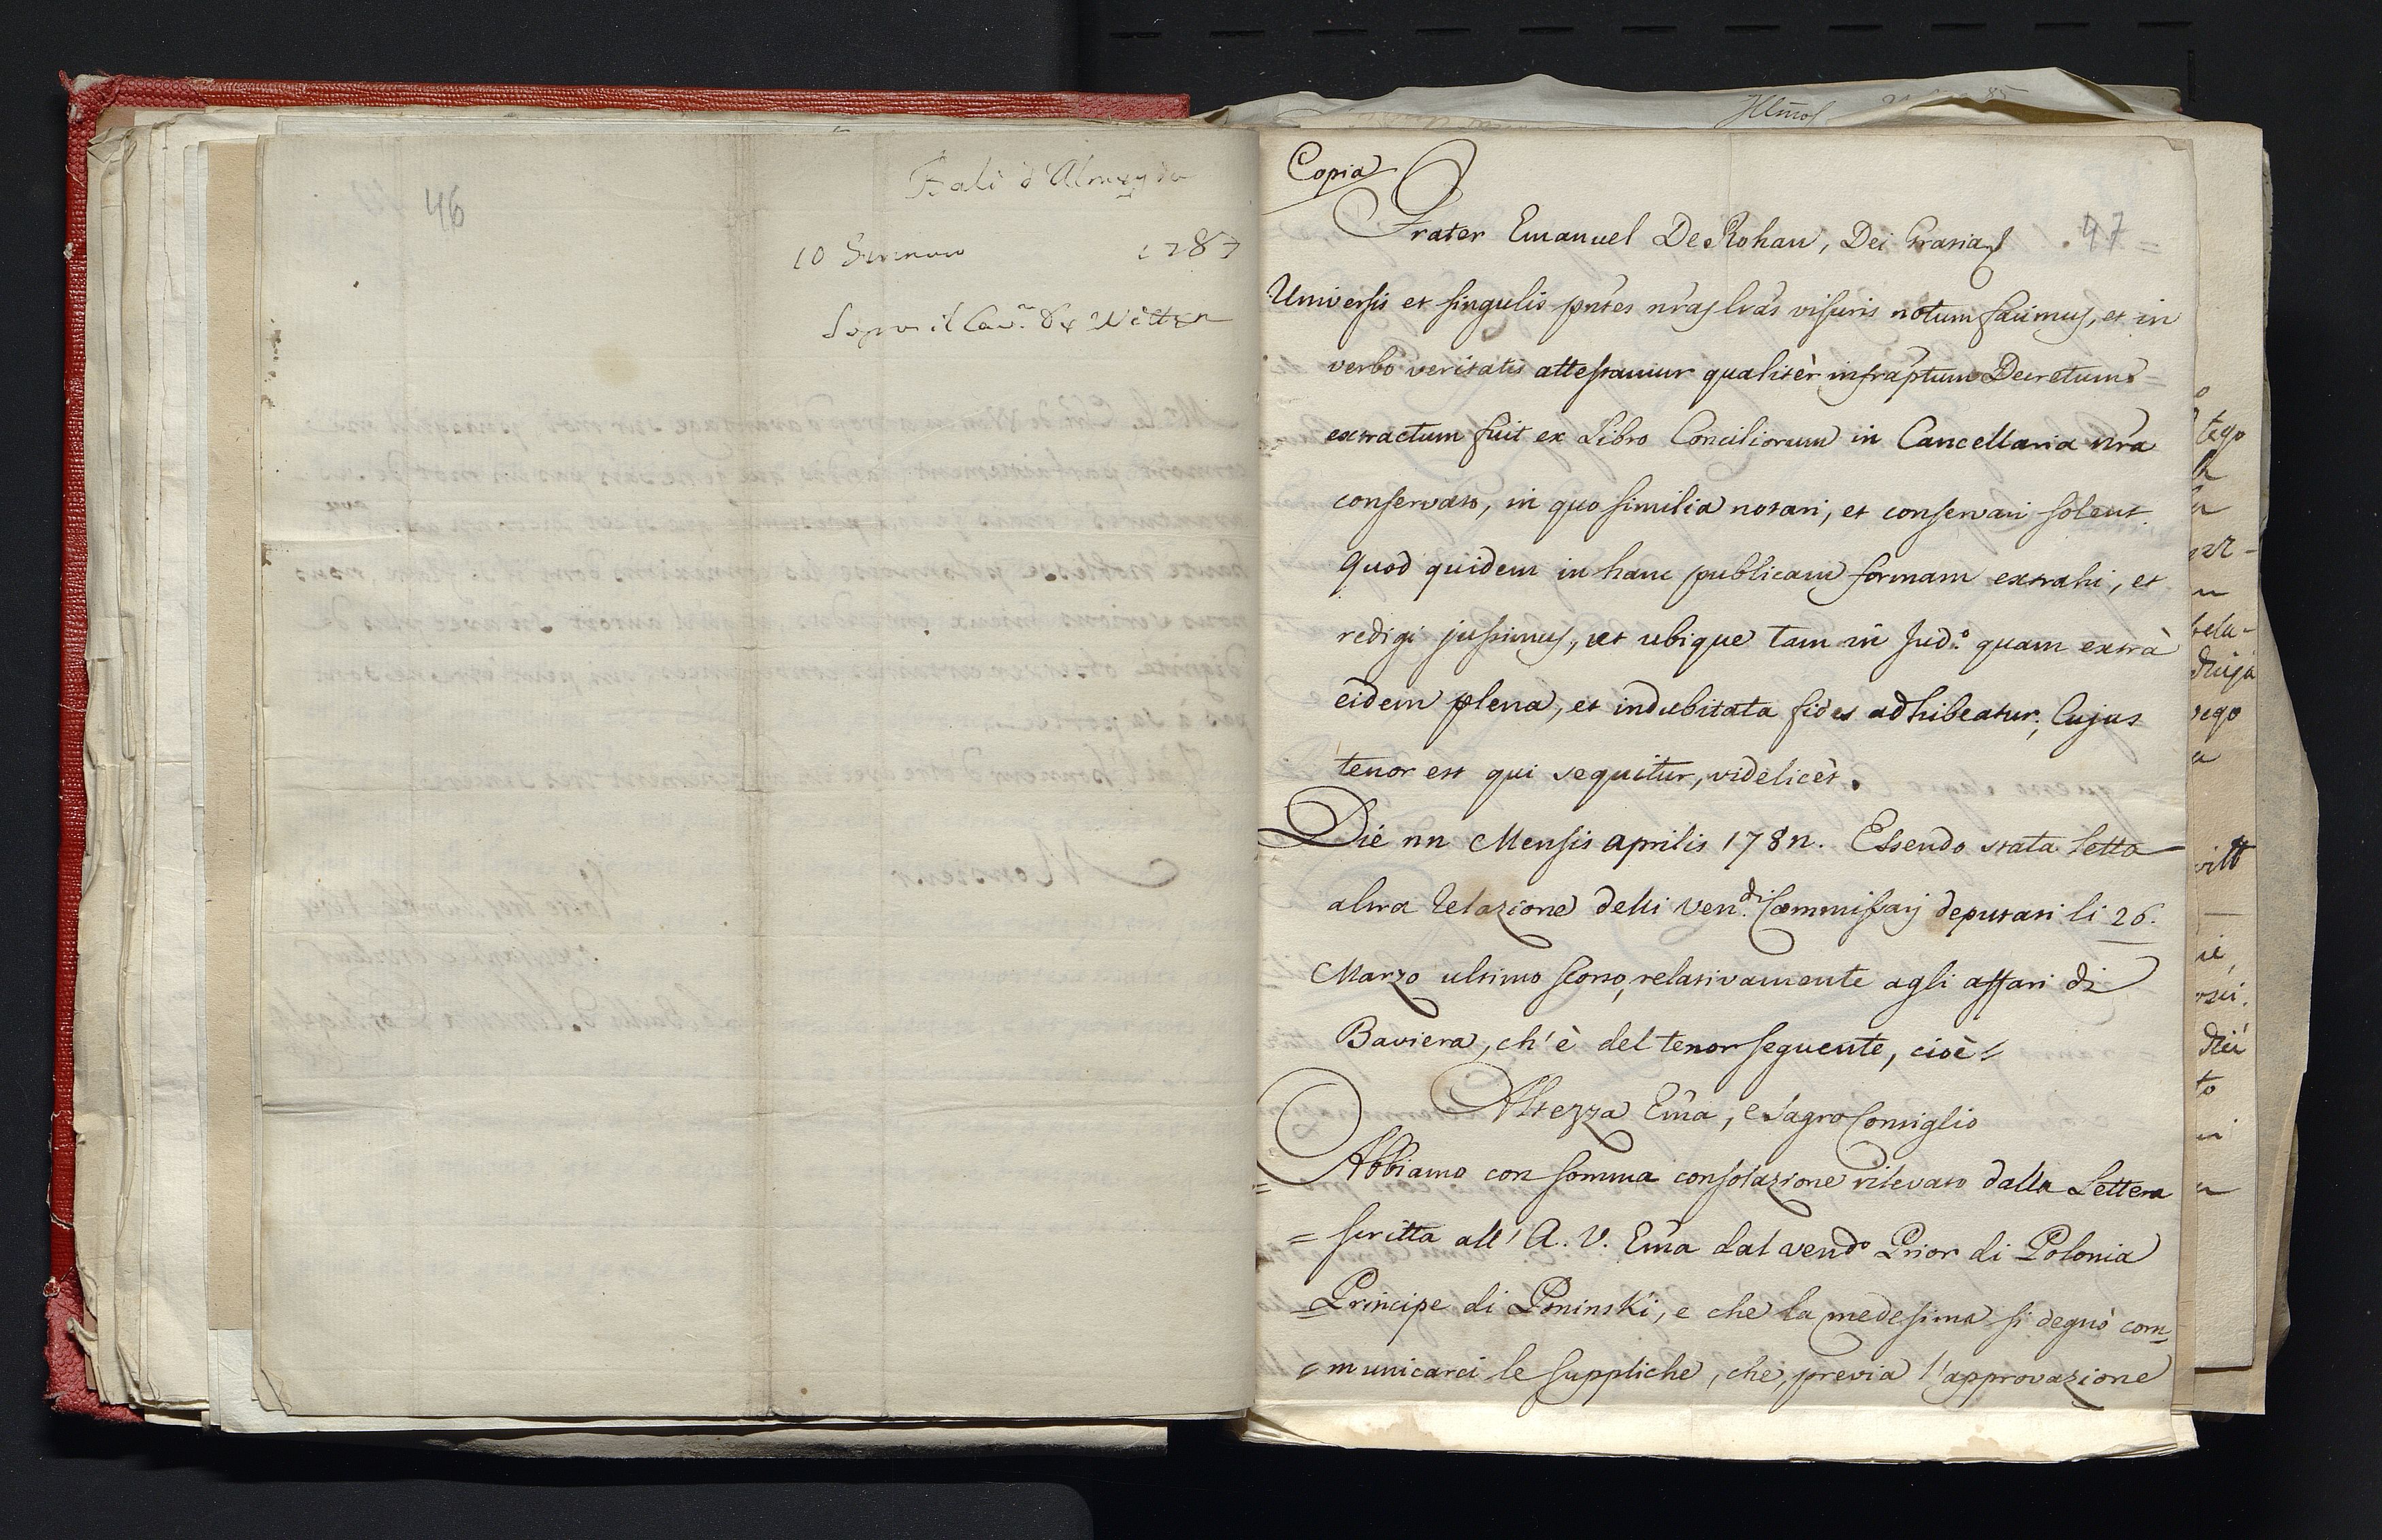 46
Bali d'Almeyda
10 Gennaro 1787
Sopra il Cav.r de Witten
Copia
Frater Emanuel De Rohan, Dei Grasia
47
Universis et singulis pntes nras lras visuris notum facimus, et in
verbo veritatis attestamur qualitèr infraptum Decretum
extractum fuit ex Libro Conciliorum in Cancellaria nra
conservato, in quo similia notari, et conservari solent.
Quod quidem in hanc publicam formam extrahi, et
redigi jussimus, ut ubique tam in Jud.o quam extrà
eidem plena, et indubitata fides adhibeatur, Cujus
tenor est qui sequitur, videlicèt.
Die nn Mensis aprilis 178n. Essendo stata letta
altra Relazione delli Ven.di Commissarj deputati li 26.
Marzo ultimo scorso, relativamente agli affari di
Baviera, ch'è del tenor seguente, cioè
Altezza Ema, e Sagro Consiglio
Abbiamo con somma consolazione rilevato dalla Lettera
= scritta all'A. V. Ema dal vendo Prior di Polonia
= Principe di Poninski, e che la medesima si degnò com=
= municarci le suppliche, che, previa l'approvazione